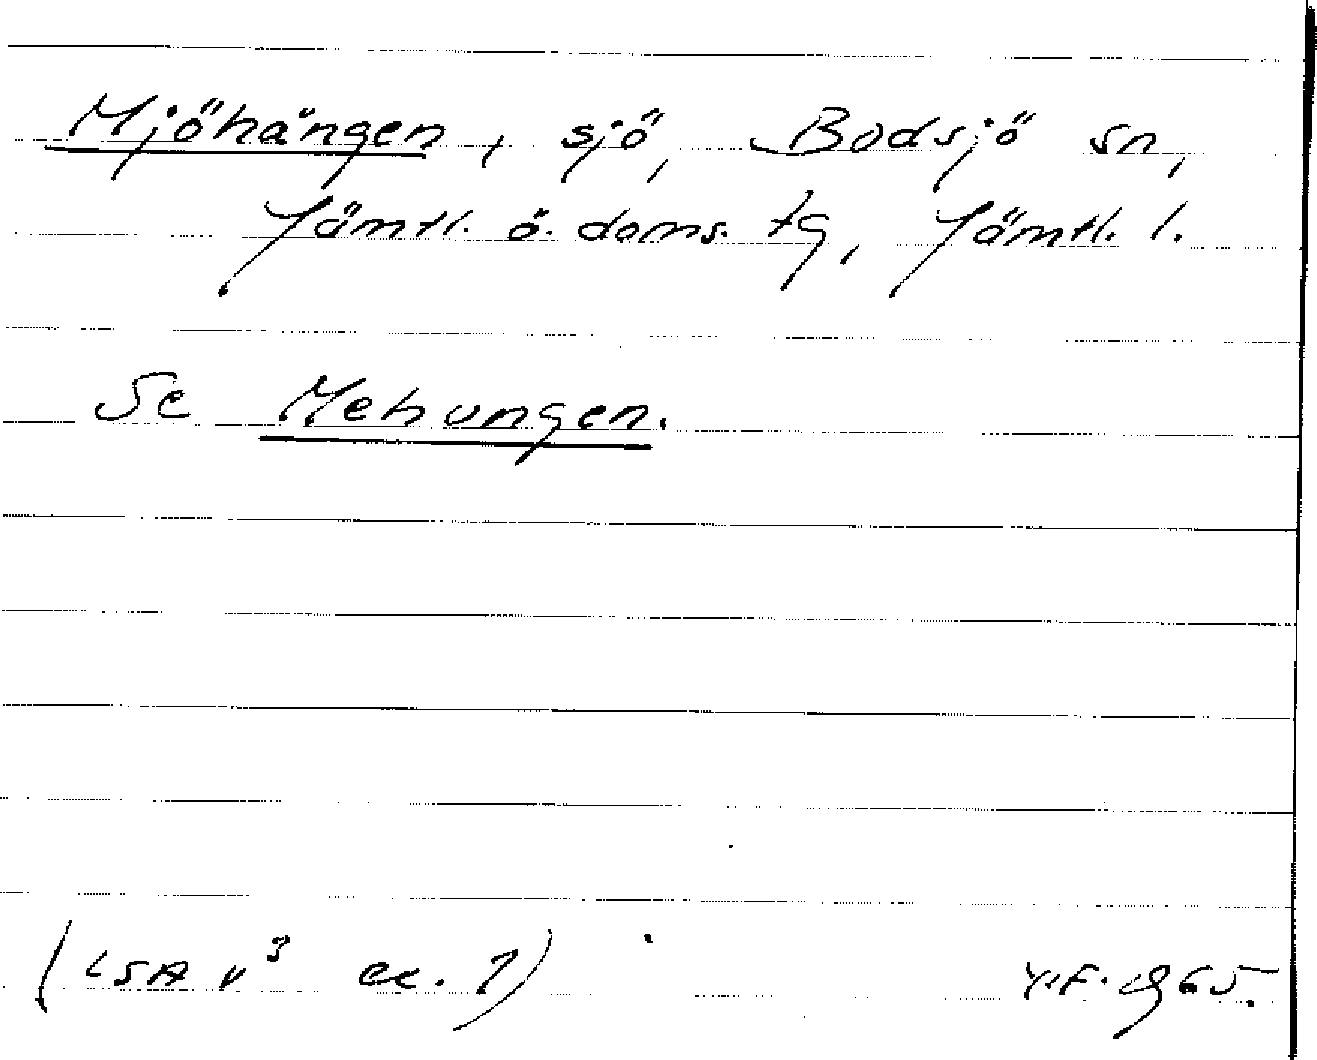 Mjöhängen, sjö, Bodsjö sn,
Jämtl. ö. doms. tg, Jämtl. l.
Se Mehungen.
(LSA V³ ex. 1) Y.F. 1965.